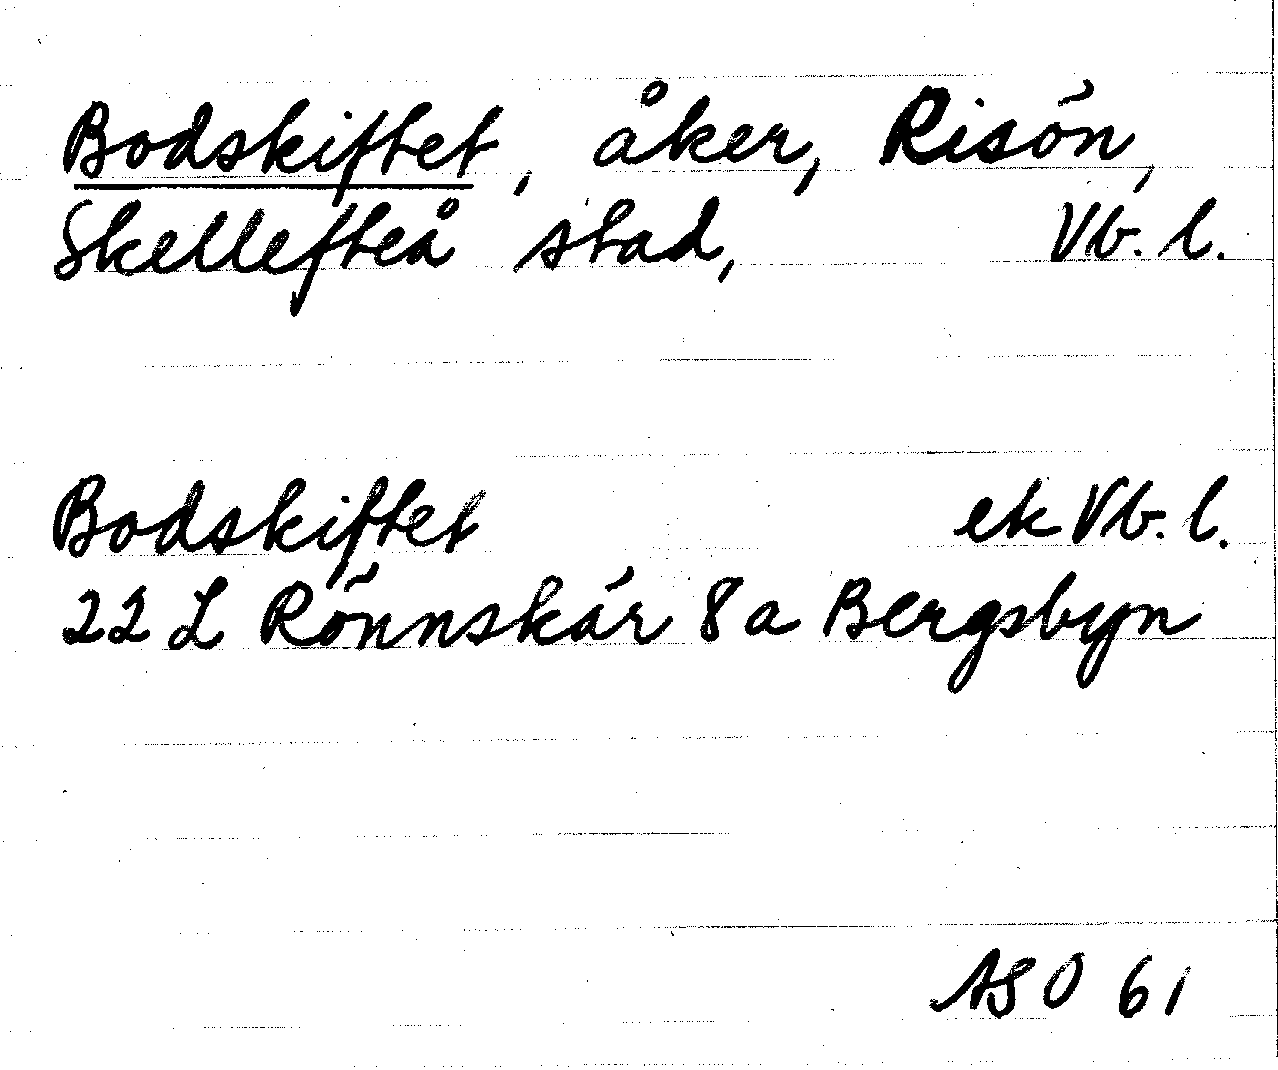 Bodskiftet, åker, Risön,
Skellefteå stad, Vb. l.
Bodskiftet ek Vb. l.
22 L Rönnskär 8 a Bergsbyn
ASO 61